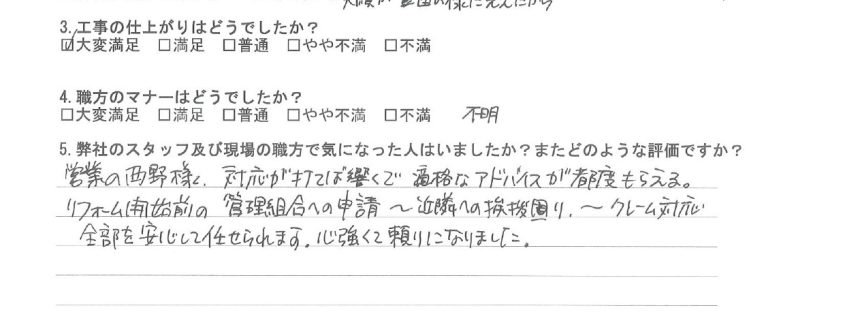 3.工事の仕上がりはどうでしたか？
☑大変満足 □満足 □普通 □やや不満 □不満
4.職方のマナーはどうでしたか？
□大変満足 □満足 □普通 □やや不満 □不満 不明
5.弊社のスタッフ及び現場の職方で気になった人はいましたか？またどのような評価ですか？
営業の西野様く、対応が打てば響くで適格なアドバイスが都度もらえる。
リフォーム開始前の管理組合への申請～近隣への挨拶周り、～クレーム対応
全部を安心して任せられます。心強くて頼りになりました。